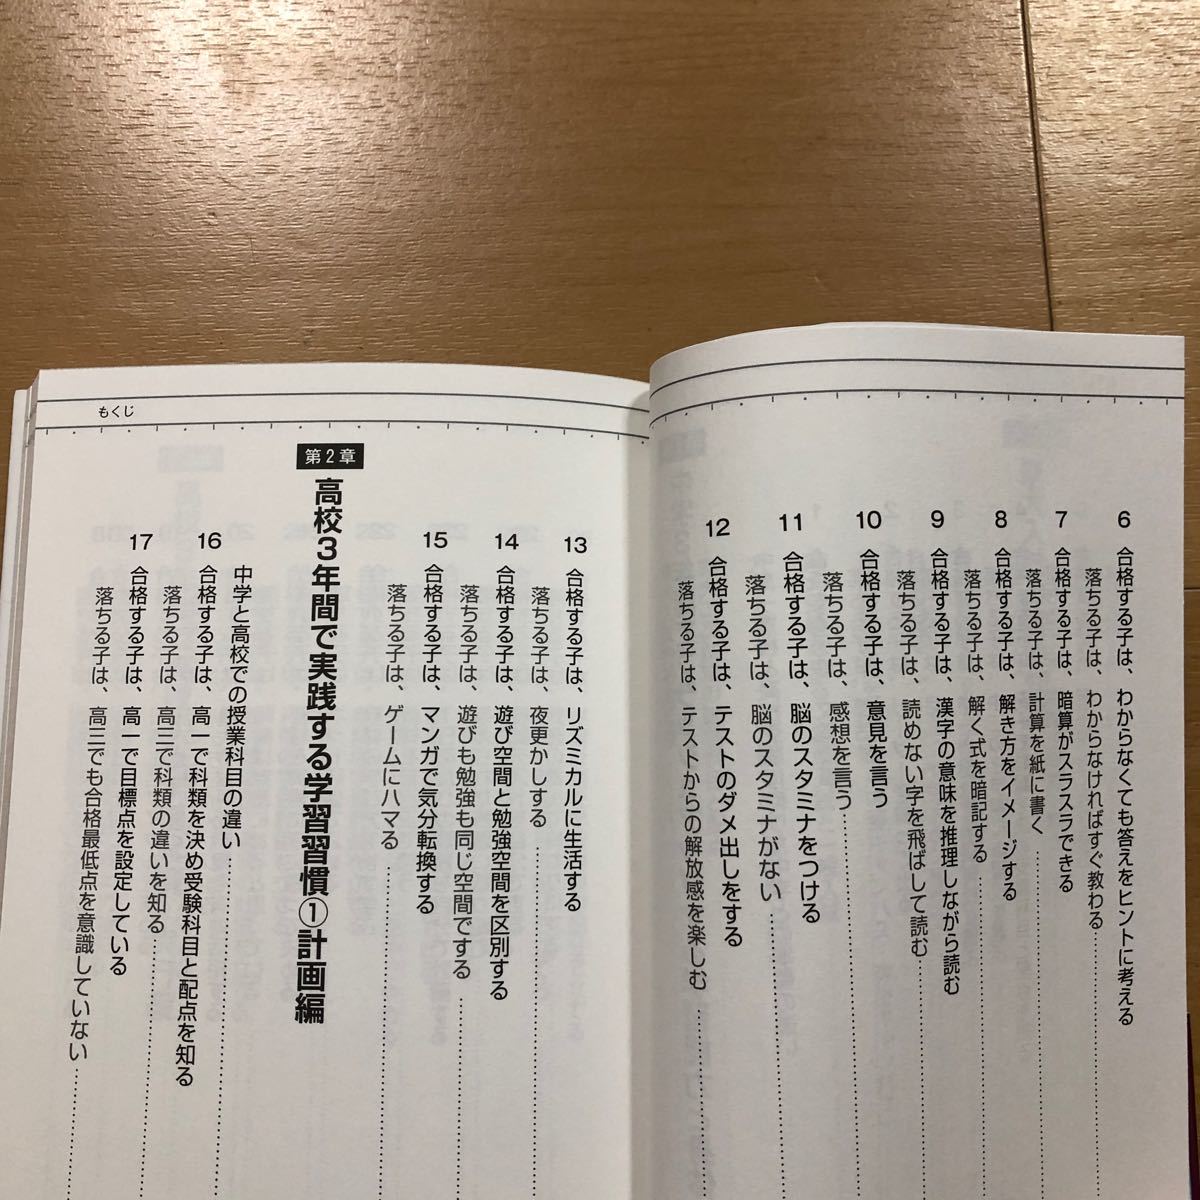 6 合格する子は、わからなくても答えをヒントに考える
落ちる子は、わからなければすぐ教わる
7 合格する子は、暗算がスラスラできる
落ちる子は、計算を紙に書く
8 合格する子は、解き方をイメージする
落ちる子は、解く式を暗記する
9 合格する子は、漢字の意味を推理しながら読む
落ちる子は、読めない字を飛ばして読む
10 合格する子は、意見を言う
落ちる子は、感想を言う
11 合格する子は、脳のスタミナをつける
落ちる子は、脳のスタミナがない
12 合格する子は、テストのダメ出しをする
落ちる子は、テストからの解放感を楽しむ
もくじ
13 合格する子は、リズミカルに生活する
落ちる子は、夜更かしする
14 合格する子は、遊び空間と勉強空間を区別する
落ちる子は、遊びも勉強も同じ空間でする
15 合格する子は、マンガで気分転換する
落ちる子は、ゲームにハマる
第2章
高校3年間で実践する学習習慣①計画編
中学と高校での授業科目の違い
16 合格する子は、高一で科類を決め受験科目と配点を知る
落ちる子は、高三で科類の違いを知る
17 合格する子は、高一で目標点を設定している
落ちる子は、高三でも合格最低点を意識していない